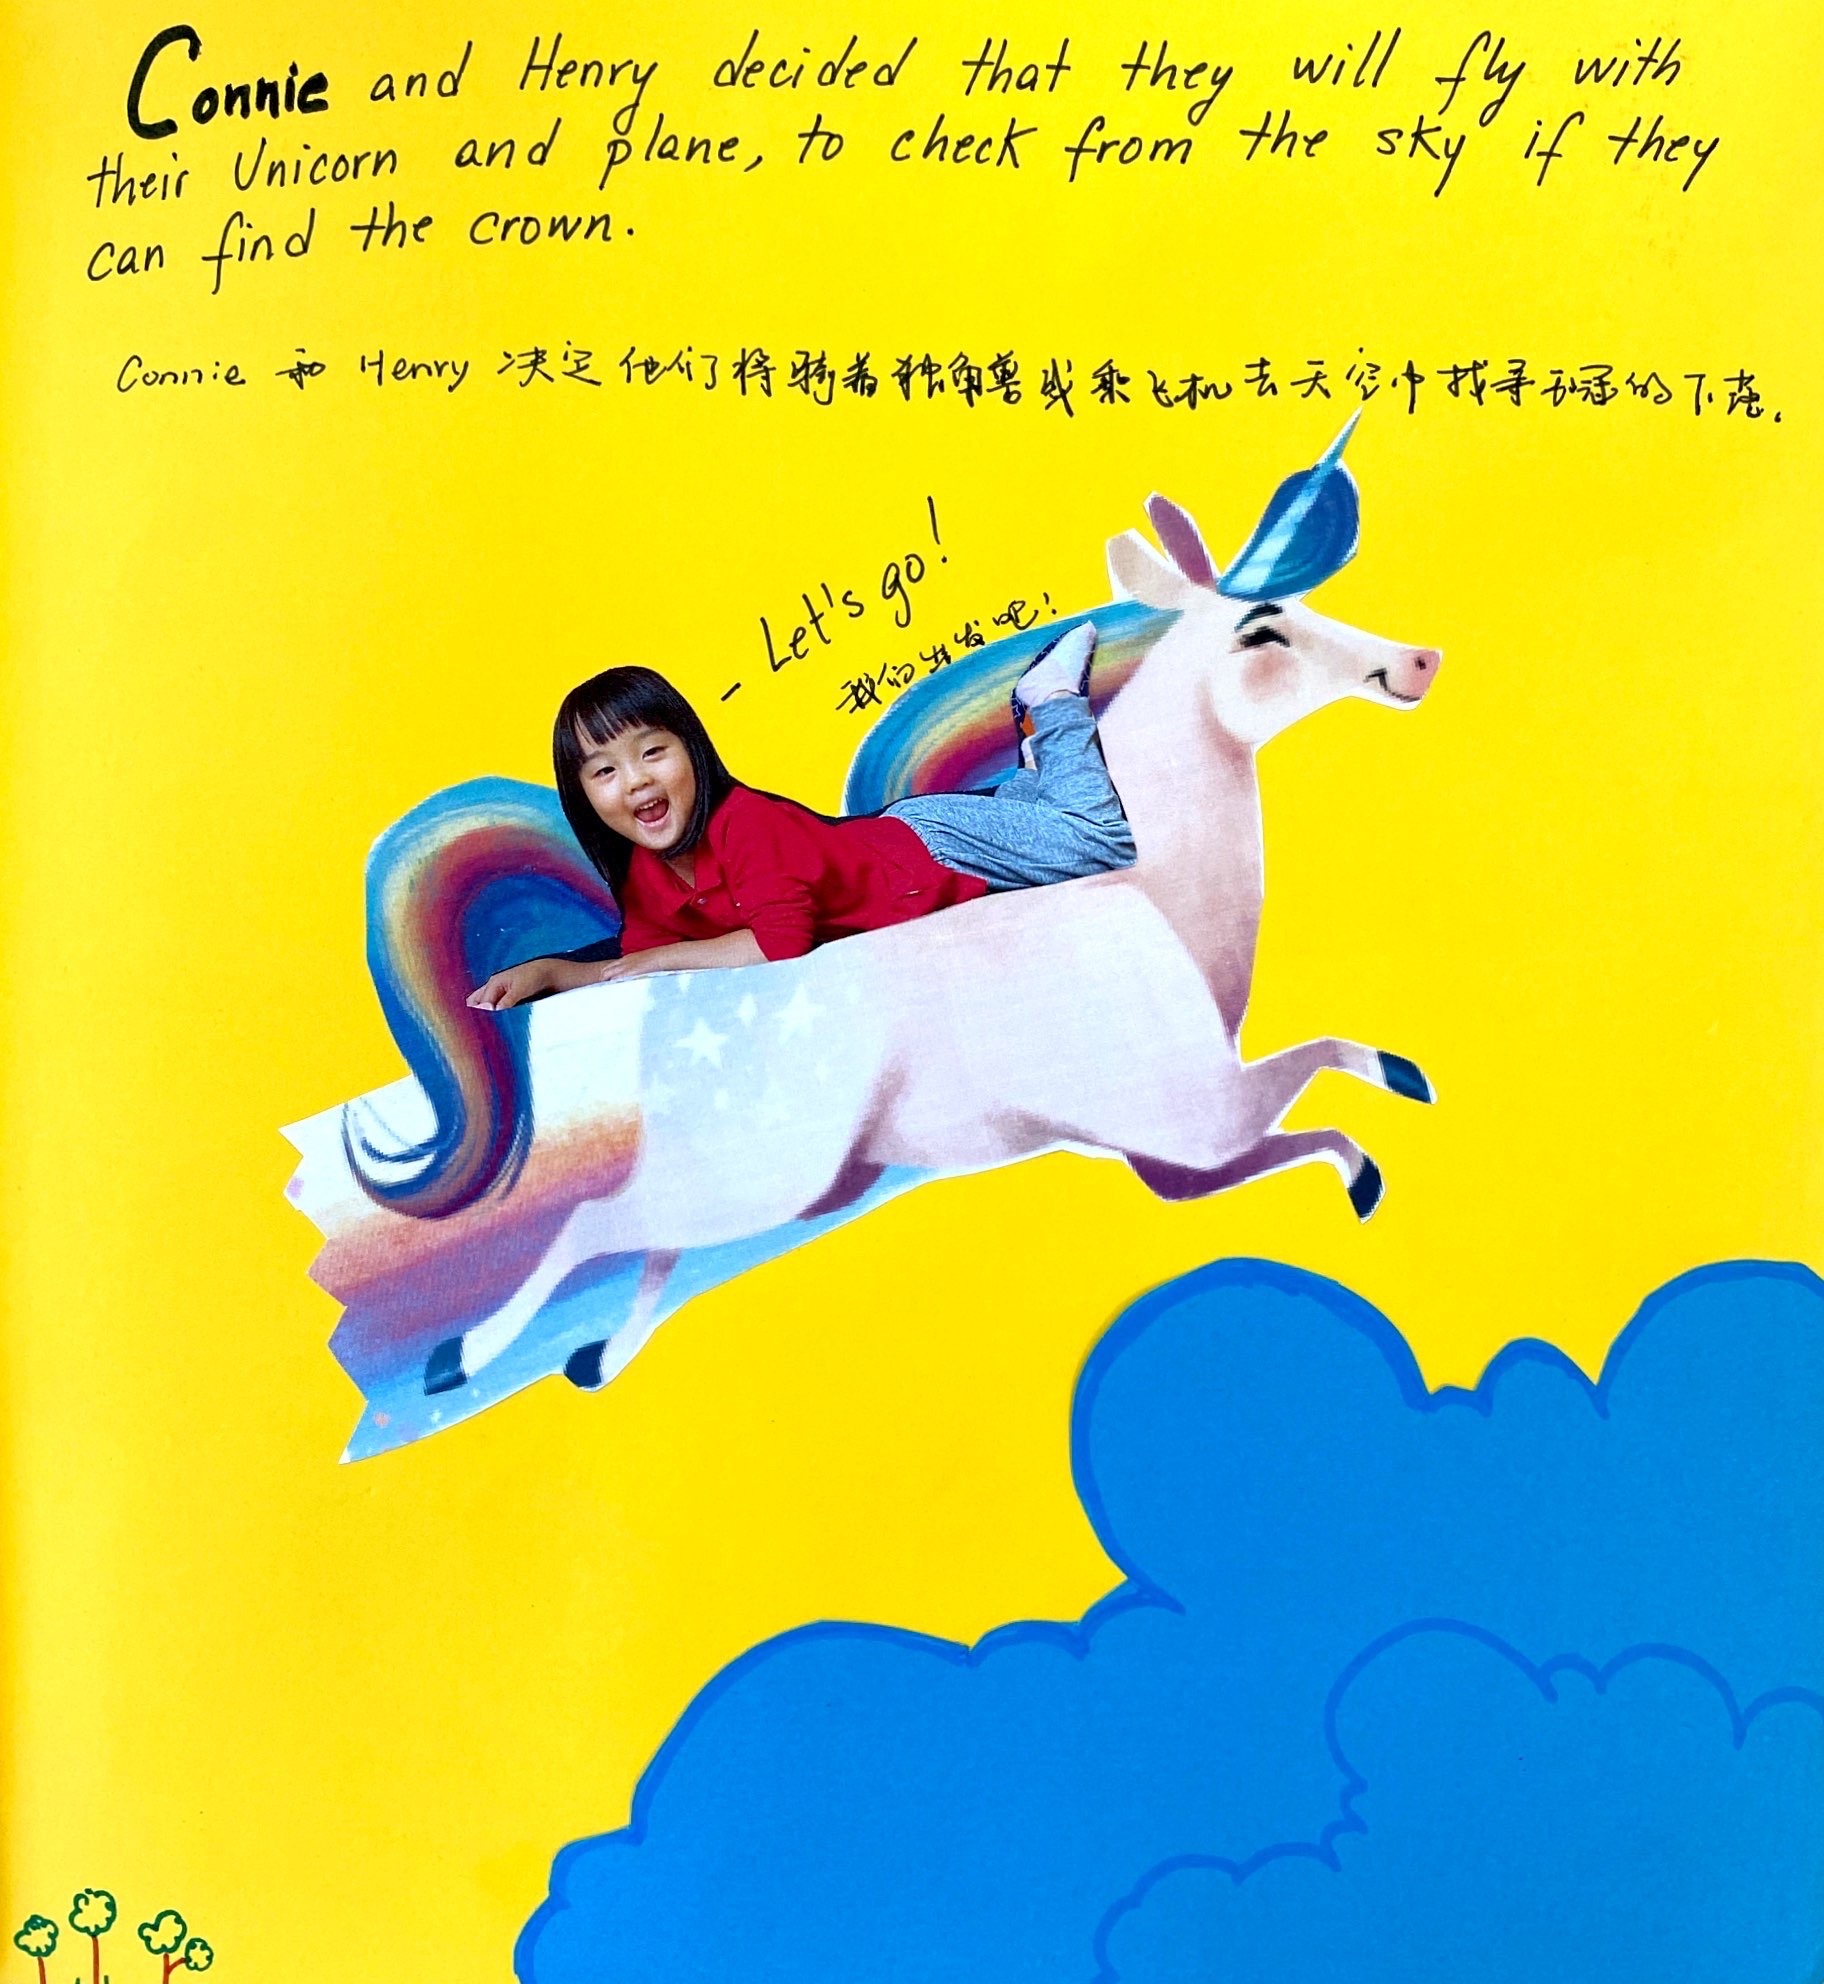 Connie and Henry decided that they will fly with
their Unicorn and plane, to check from the sky if they
can find the crown.
Connie 和 Henry 决定他们将骑着独角兽或乘飞机去天空中找寻王冠的下落.
- Let's go!
我们出发吧!